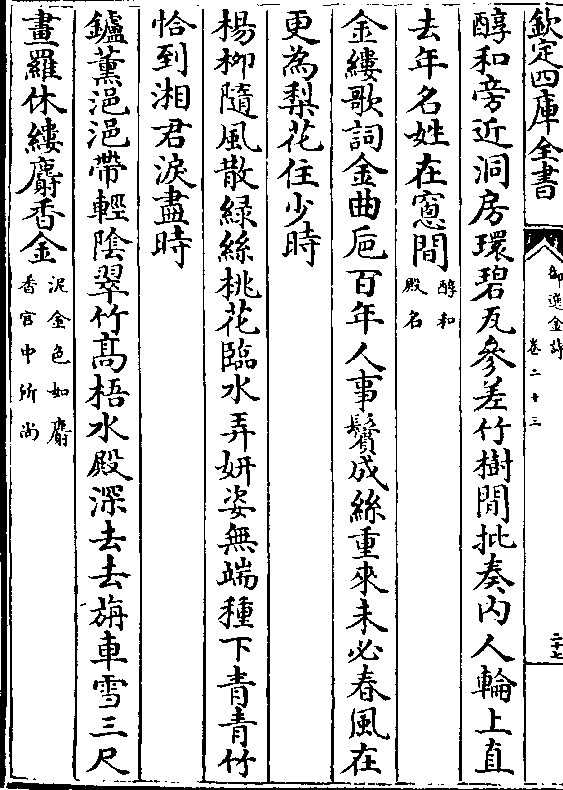 欽定四庫全書
御選金詩
卷二十三
二十七
醇和旁近洞房環碧瓦參差竹樹間批奏内人輪上直
去年名姓在窻間醇和殿名
金縷歌詞金曲巵百年人事鬢成絲重來未必春風在
更為梨花住少時
楊柳隨風散緑絲桃花臨水弄妍姿無端種下青青竹
恰到湘君淚盡時
鑪薰浥浥帶輕陰翠竹髙梧水殿深去去旃車雪三尺
畫羅休縷麝香金泥金色如麝香宫中所尚